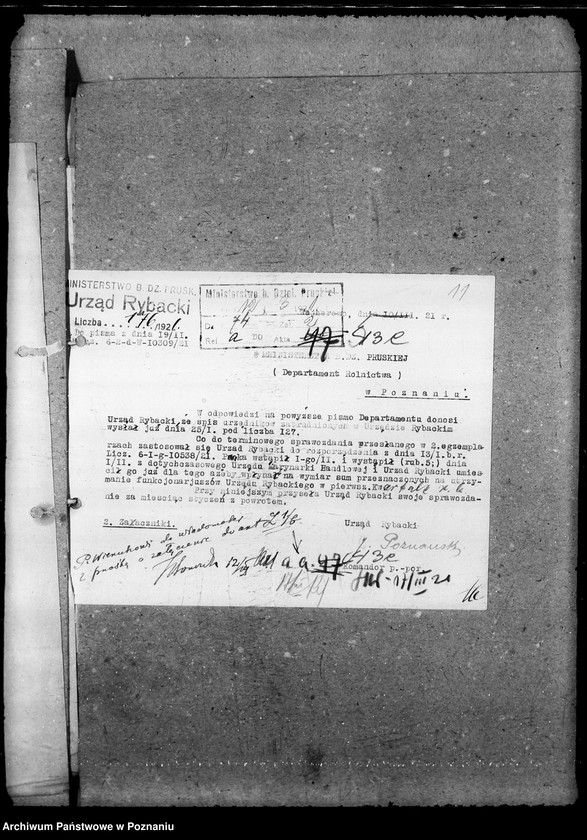 11
MINISTERSTWO B. DZ. PRUSK.
Urząd Rybacki
Liczba 176/1921.
Do pisma z dnia 19/II.
6-E-d-W-I0309/21
Ministerstwo b. Dziel. Pruskiej
Wejherowo, dnia 10/III. 21 r.
74
a
DO
47 43 e
MINISTERSTWO B. DZ. PRUSKIEJ
( Departament Rolnictwa )
w Poznaniu.
W odpowiedzi na powyższe pismo Departamentu donosi
Urząd Rybacki, że spis urzędników zatrudnionych w Urzędzie Rybackim
wysłał już dnia 25/I. pod liczbą I27.
Co do terminowego sprawozdania przesłanego w 2.egzempla
rzach zastosował się Urząd Rybacki do rozporządzenia z dnia I3/I.b.r.
Licz. 6-I-g-I0538/21. wstąpił I-go/II. i wystąpił (rub.5;) dnia
I/II. z dotychczasowego Urzędu Marynarki Handlowej i Urząd Rybacki umieś
cił go już dla tego ażeby wpłynąć na wymiar sum przeznaczonych na utrzy-
manie funkcjonarjuszów Urzędu Rybackiego w pierwsz. Kwartale r. b.
Przy niniejszym przyseła Urząd Rybacki swoje sprawozda-
nie za miesiąc styczeń z powrotem.
2. Załączniki.
Urząd Rybacki
P. Wienuchowi do wiadomości
z prośbą o załączenie do akt
J. Poznański
Komandor p.-por.
12/III
a a 47 43 e
17/III 21
Archiwum Państwowe w Poznaniu